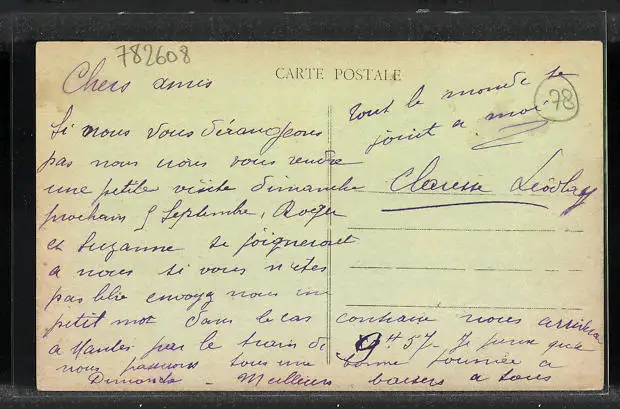 782608
CARTE POSTALE
78
Chers amis
Si nous vous dérangeons
pas nous vous rendre
une petite visite dimanche
prochain 5 Septembre, Roger
et Suzanne se joigneront
a nous si vous n'êtes
pas libre envoyq nous un
petit mot dans le cas contraire nous arrivera
a Mantes par le train de 9H 57. Je pense que
nous passerons tous une bonne journée a
Dimanche - Meilleurs baisers a tous
tout le monde se
joint a moi
Clarisse